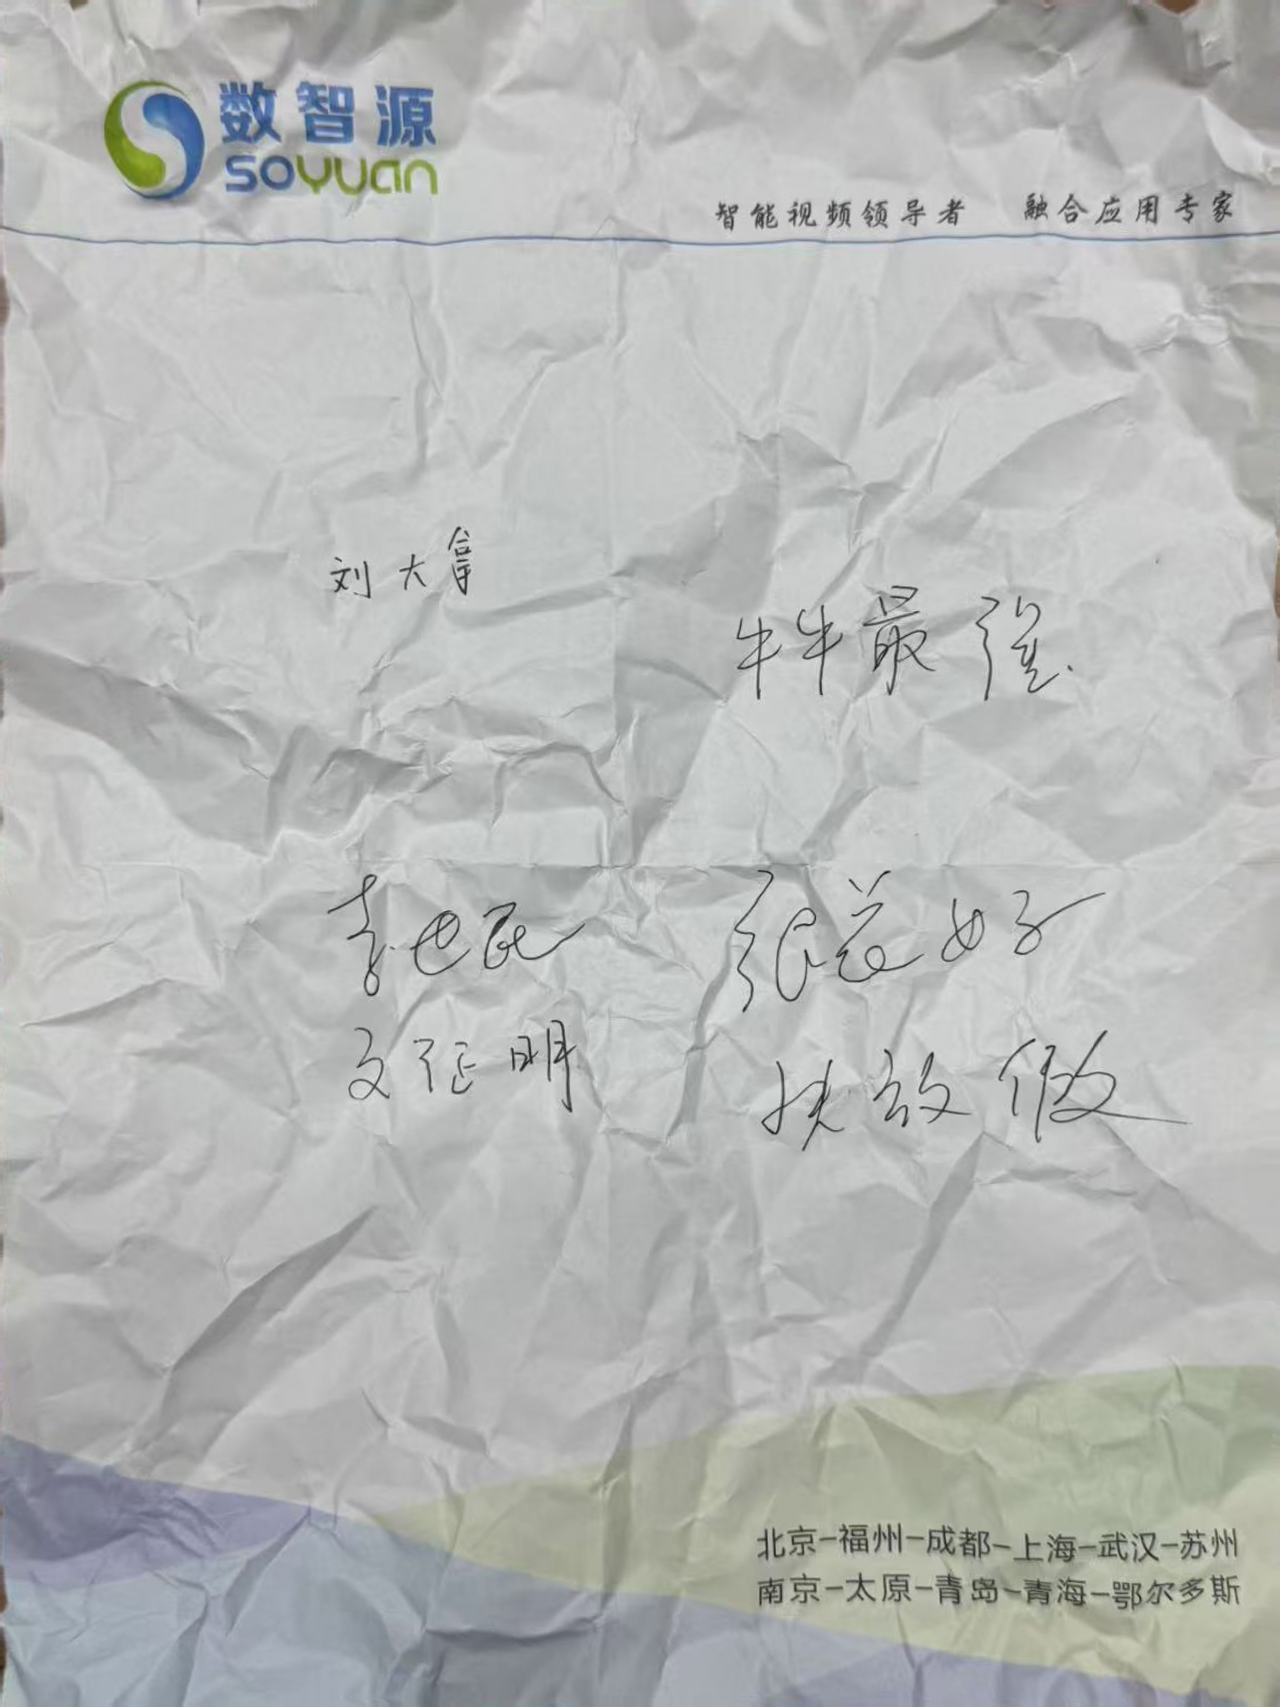 数智源
SOYUAN
智能视频领导者 融合应用专家
刘大拿
牛牛最强
李世民
张总好
文征明
快放假
北京-福州-成都-上海-武汉-苏州
南京-太原-青岛-青海-鄂尔多斯